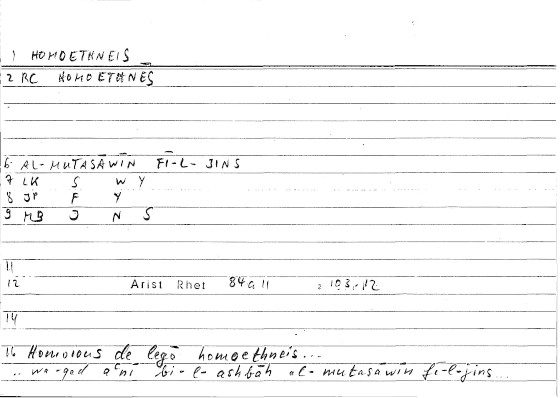 1 HOMOETHNEIS
2 RC HOMOETHNES
6 AL-MUTASĀWĪN FĪ-L-JINS
7 LK S W Y
8 JP F Y
9 MB J N S
11
12 Arist Rhet 84a11 , 103,12
14
16 Homoious de legō homoethneis...
.. wa-qad aʿnī bi-l-ashbāh al-mutasāwīn fī-l-jins...